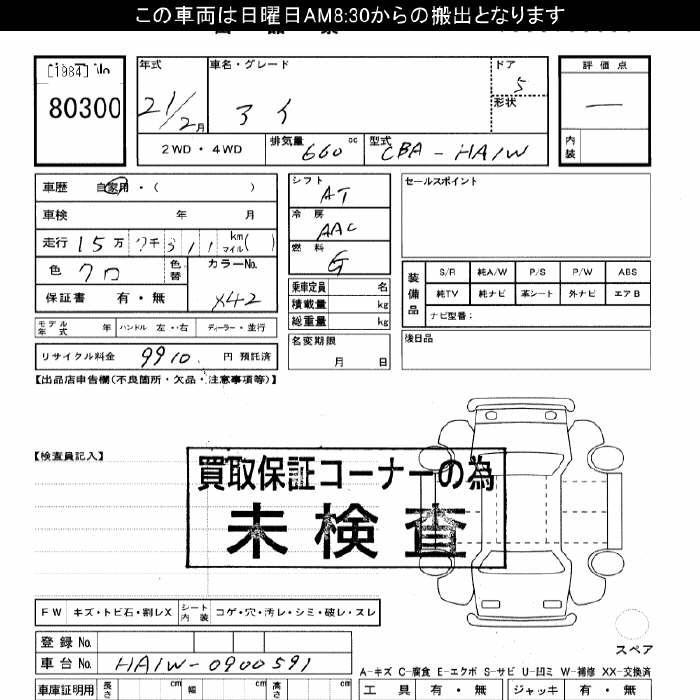 この車両は日曜日AM8:30からの搬出となります
[1984] No
80300
年式
車名・グレード
ドア
評価点
21/2月
アイ
5
形状
―
2WD・4WD
排気量 660 cc
型式 CBA-HA1W
内装
車歴 自家用・( )
シフト AT
セールスポイント
車検 年 月
冷房 AAC
走行 15万7千311 km マイル( )
燃料 G
色 クロ
色替
カラーNo. X42
保証書 有・無
乗車定員 名
積載量 kg
総重量 kg
装備品
S/R 純A/W P/S P/W ABS
純TV 純ナビ 革シート 外ナビ エアB
ナビ型番:
モデル年式 年 ハンドル 左・右 ディーラー・並行
名変期限 月 日
後日品
リサイクル料金 9910 円 預託済
【出品店申告欄(不良箇所・欠品・注意事項等)】
【検査員記入】
買取保証コーナーの為
未検査
FW キズ・トビ石・割レX
シート内装 コゲ・穴・汚レ・シミ・破レ・スレ
登録No.
車台No. HA1W-0900591
スペア
A-キズ C-腐食 E-エクボ S-サビ U-凹ミ W-補修 XX-交換済
車庫証明用 長さ cm 幅 cm 高さ cm
工具 有・無 ジャッキ 有・無